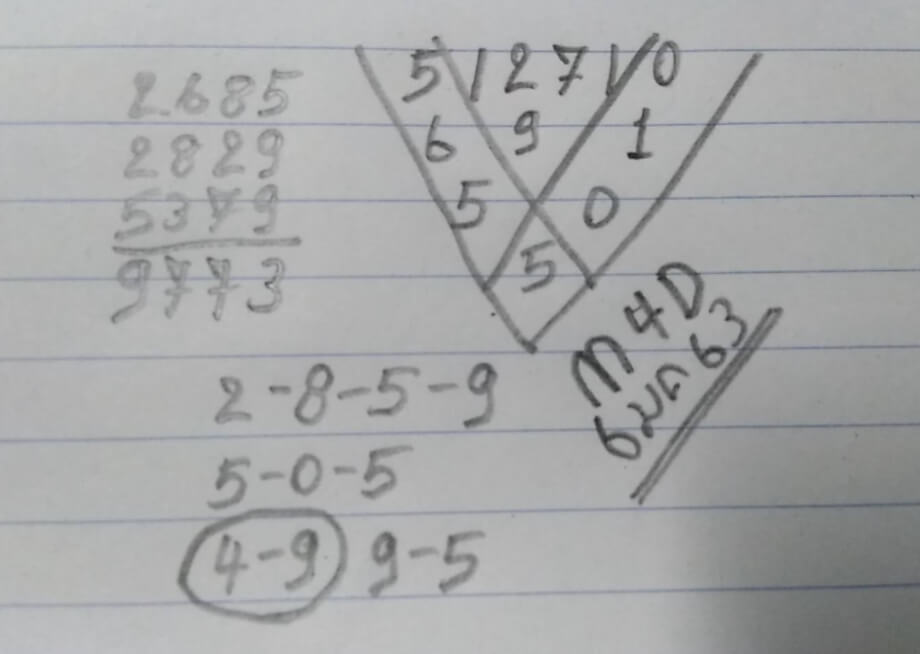 2685
2829
5379
9773
5 1 2 7 1 0
6 9 1
5 0
5
M4D
6 มค 63
2-8-5-9
5-0-5
4-9 9-5